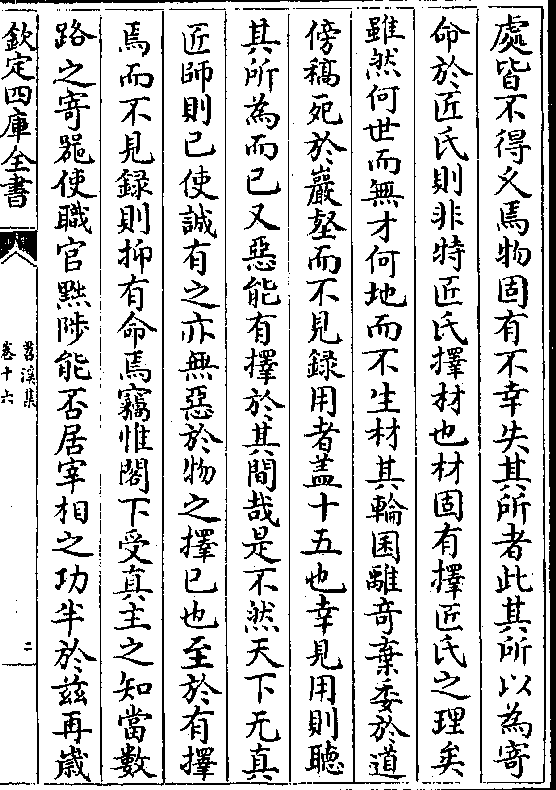 處皆不得久焉物固有不幸失其所者此其所以為寄
命於匠氏則非特匠氏擇材也材固有擇匠氏之理矣
雖然何世而無才何地而不生材其輪囷離竒棄委於道
傍稿死於巖壑而不見録用者蓋十五也幸見用則聽
其所為而已又惡能有擇於其間哉是不然天下无真
匠師則已使誠有之亦無惡於物之擇已也至於有擇
焉而不見録則抑有命焉竊惟閣下受真主之知當數
路之寄器使職官黜陟能否居宰相之功半於兹再歳
欽定四庫全書
苕溪集
卷十六
二